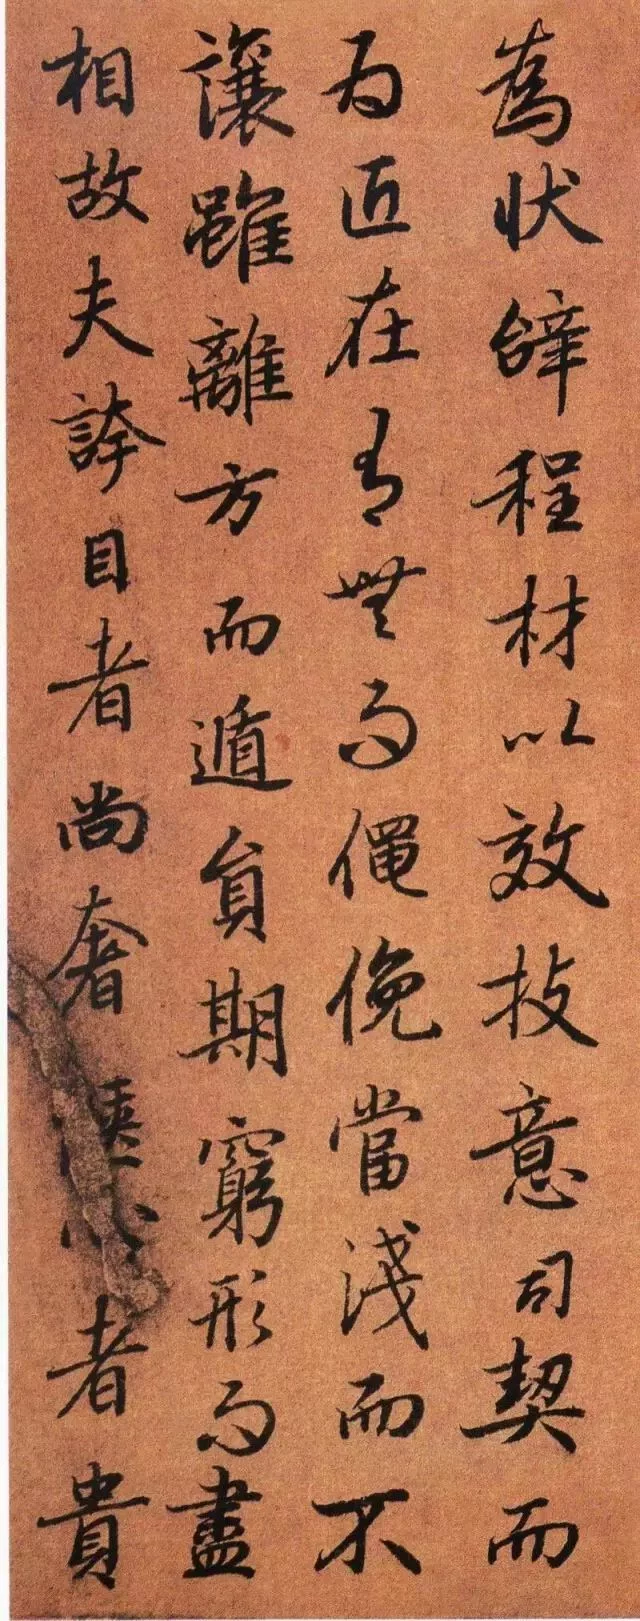 為狀辝程材以效技意司契而
為匠在有無而僶俛當淺而不
讓雖離方而遁員期窮形而盡
相故夫誇目者尚奢愜心者貴